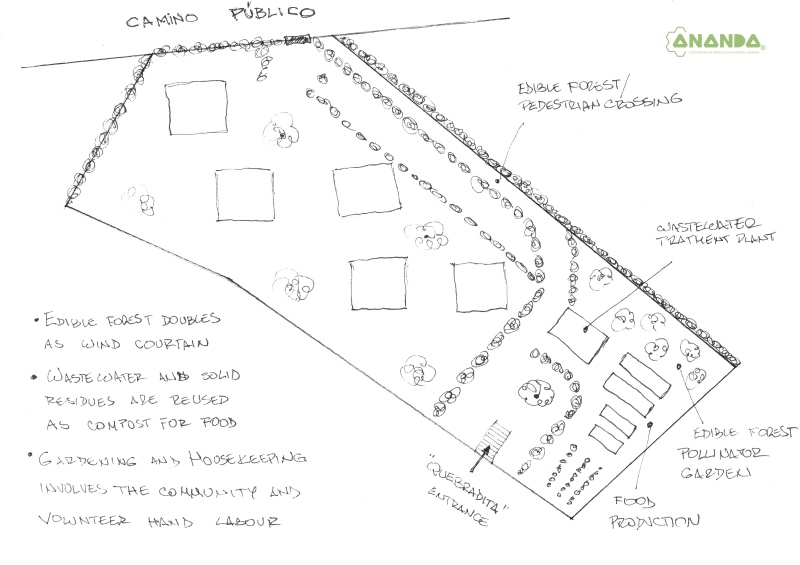 CAMINO PÚBLICO
ANANDA
EDIBLE FOREST/
PEDESTRIAN CROSSING
WASTEWATER
TRATMENT PLANT
• EDIBLE FOREST DOUBLES
AS WIND COURTAIN
• WASTEWATER AND SOLID
RESIDUES ARE REUSED
AS COMPOST FOR FOOD
• GARDENING AND HOUSEKEEPING
INVOLVES THE COMMUNITY AND
VOLUNTEER HAND LABOUR
"QUEBRADITA"
ENTRANCE
EDIBLE FOREST
POLLINATOR
GARDEN
FOOD
PRODUCTION